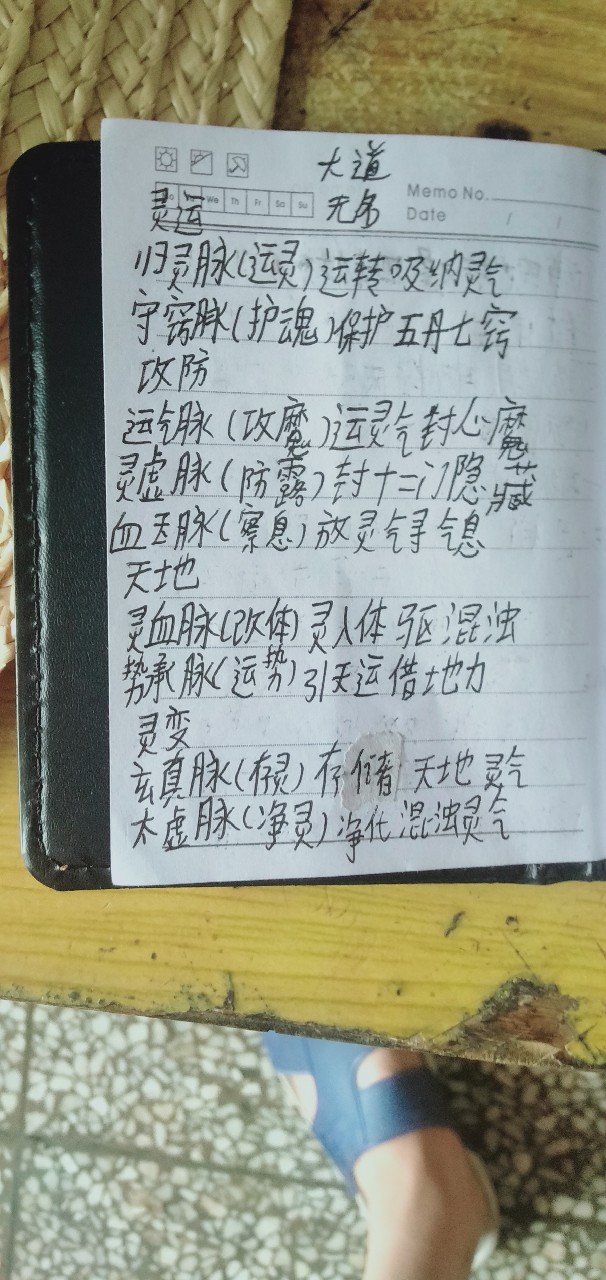 大道
无名
Memo No.
Date / /
We Th Fr Sa Su
灵运
归灵脉(运灵)运转吸纳灵气
守窍脉(护魂)保护五丹七窍
攻防
运气脉(攻魔)运灵气封心魔
灵虚脉(防露)封十二门隐藏
血玉脉(察息)放灵气寻气息
天地
灵血脉(改体)灵人体驱混浊
势承脉(运势)引天运借地力
灵变
玄真脉(存灵)存储着天地灵气
太虚脉(净灵)净化混浊灵气